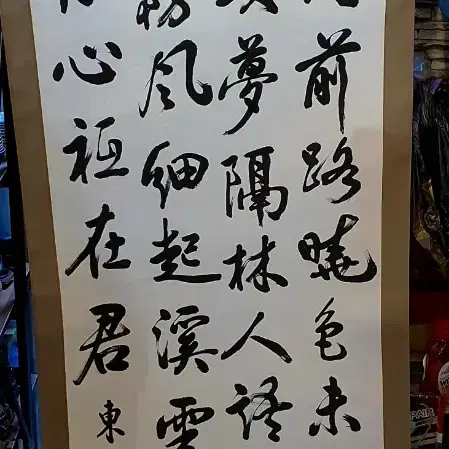 前路曉色未
夢隔林人語
風細起溪雲
心祗在君
東